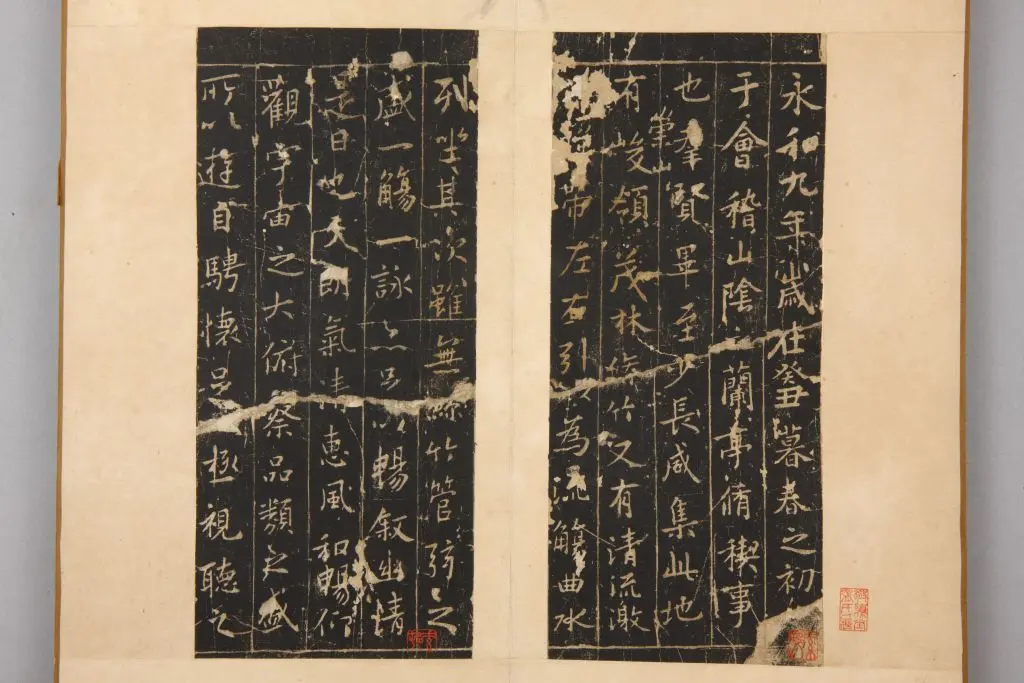 永和九年歲在癸丑暮春之初
于會稽山陰之蘭亭脩稧事
也羣賢畢至少長咸集此地
有崇山峻嶺茂林脩竹又有清流激
帶左右引以為流觴曲水
列坐其次雖無絲竹管弦之
盛一觴一詠亦足以暢叙幽情
是日也天朗氣清惠風和暢仰
觀宇宙之大俯察品類之盛
所以遊目騁懷足以極視聽之